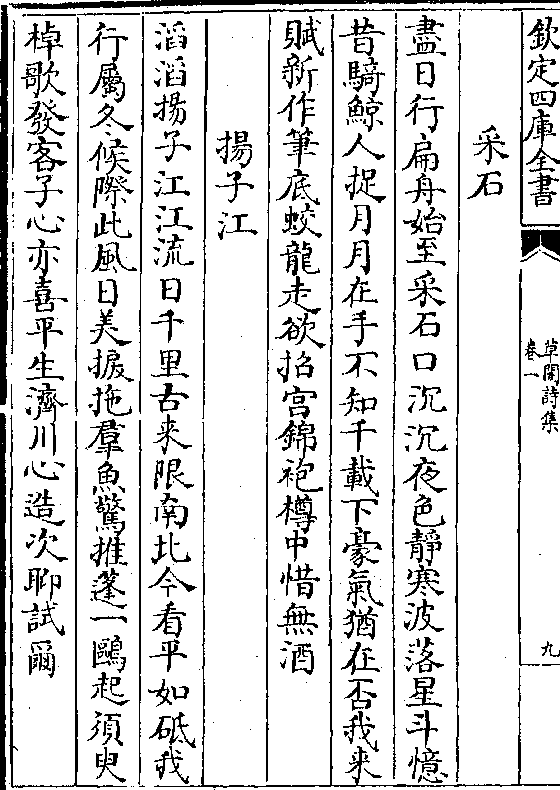 欽定四庫全書
草閣詩集
卷一
九
采石
盡日行扁舟始至采石口沉沉夜色靜寒波落星斗憶
昔騎鯨人捉月月在手不知千載下豪氣猶在否我来
賦新作筆底蛟龍走欲招宫錦袍樽中惜無酒
揚子江
滔滔揚子江江流日千里古来限南北今看平如砥我
行屬冬候際此風日美捩拖羣魚驚推蓬一鷗起須臾
棹歌發客子心亦喜平生濟川心造次聊試爾